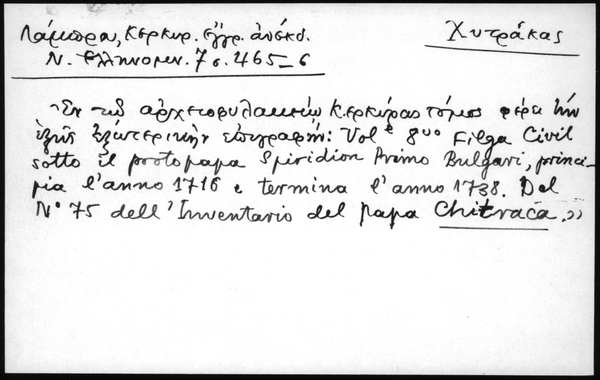 Λάμπρου, Κερκυρ. ἔγγρ. ἀνέκδ.
Χυτράκας
Ν. Ἑλληνομν. 7 σ. 465-6
"Ἐν τῷ ἀρχειοφυλακείῳ Κερκύρας τόμος φέρει τὴν
ἑξῆς ἐξωτερικὴν ἐπιγραφήν: Vol e 8vo Filza Civil
sotto il protopapa Spiridion Primo Bulgari, princi-
pia l'anno 1716 e termina l'anno 1738. Del
No 75 dell'Inventario del papa Chitraca."